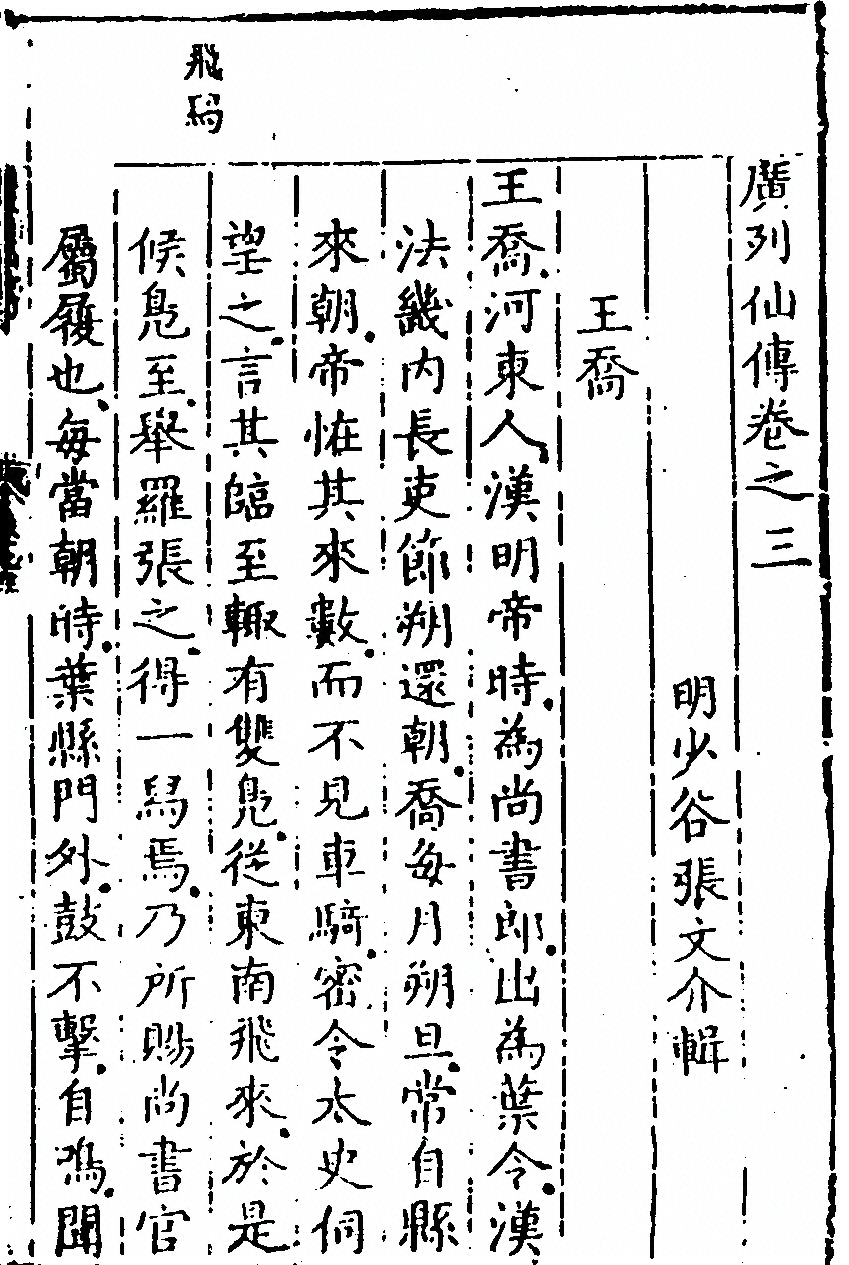 廣列仙傳卷之三
明少谷張文介輯
王喬
王喬河東人漢明帝時為尚書郎出為葉令漢
法畿內長吏節朔還朝喬每月朔旦常自縣
來朝帝恠其來數而不見車騎密令太史伺
望之言其臨至輙有雙鳬從東南飛來於是
候鳬至舉羅張之得一舄焉乃所賜尚書官
屬履也每當朝時葉縣門外鼓不擊自鳴聞
飛舄